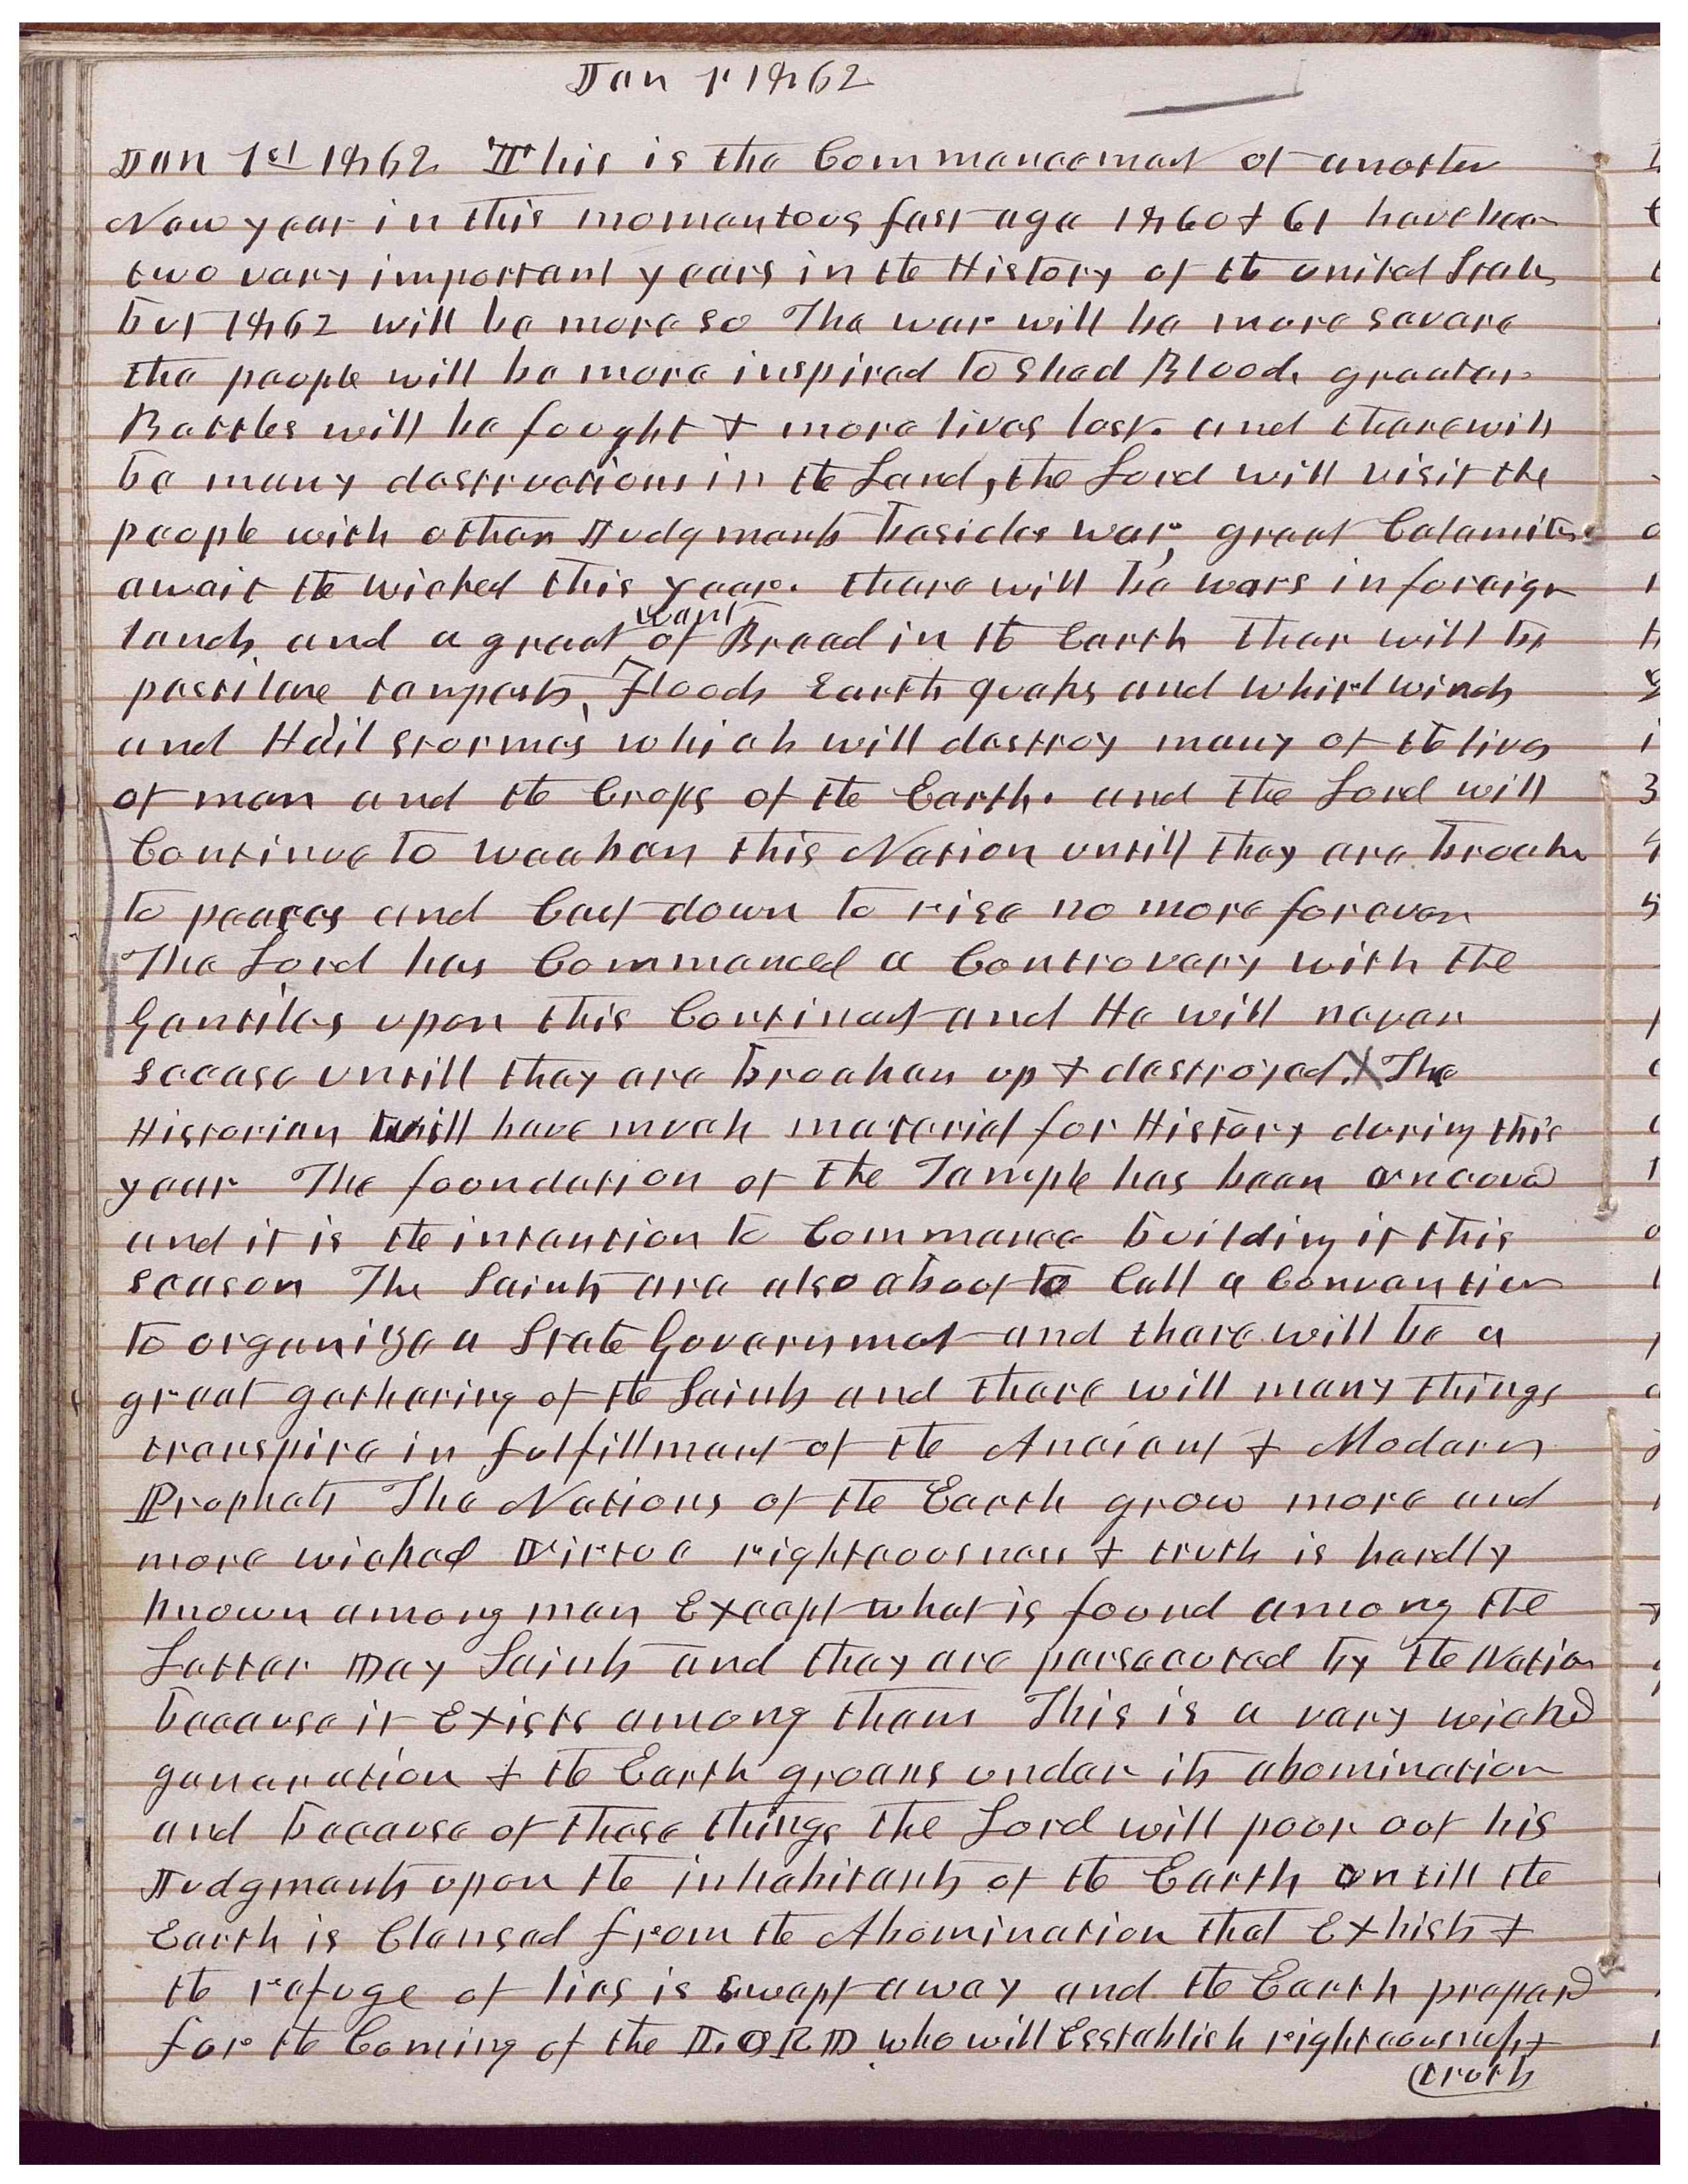 Jan 1. 1862
Jan 1st 1862 This is the Commencement of another
New year in this momentous fast age 1860 & 61 have been
two very important years in the History of the united States
but 1862 will be more so The war will be more severe
the people will be more inspired to shed Blood, greater
Battles will be fought & more lives lost. and there will
be many destructions in the Land, the Lord will visit the
people with other Judgments besides war, great Calamities
await the wicked this year. there will be wars in foreign
lands, and a great want of Bread in the Earth ther will be
pestilene tempests, Floods Earth quaks and whirl winds
and Hail stormes which will destroy many of the lives
of men and the Crops of the Earth. and the Lord will
Continue to weaken this Nation untill they are broake
to peaces and Cast down to rise no more forever
The Lord has Commenced a Controvery with the
Gentiles upon this Continent and He will never
seease untill they are broaken up & destroyed. X The
Historian will have much material for History during this
year The foundation of the Temple has been uncovd
and it is the intention to Commence building it this
season The Saints are also about to Call a Convention
to organize a State Governmet and there will be a
great gathering of the Saints and there will many things
transpire in fulfillment of the Ancient & Modern
Prophets The Nations of the Earth grow more and
more wicked Virtue righteousness & truth is hardly
known among men Except what is found among the
Latter Day Saints and they are persecuted by the Nation
because it Exists among them This is a very wicked
generation & the Earth groans under its abomination
and because of these things the Lord will poor out his
Judgments upon the inhabitants of the Earth untill the
Earth is Clensed from the Abomination that Exhists &
the refuge of lies is swept away and the Earth prepard
for the Coming of the LORD who will Esstablish righteousness &
truth